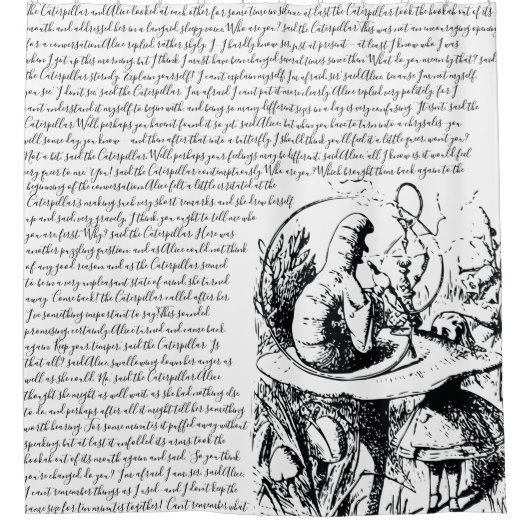 the Caterpillar and Alice looked at each other for some time in silence at last the Caterpillar took the hookah out of its
mouth and addressed her in a languid, sleepy voice. Who are you? said the Caterpillar. This was not an encouraging opening
for a conversation. Alice replied, rather shyly, I I hardly know, sir, just at present at least I know who I was
when I got up this morning, but I think I must have been changed several times since then. What do you mean by that? said
the Caterpillar sternly. Explain yourself! I can't explain myself, I'm afraid, sir, said Alice, because I'm not myself,
you see. I don't see, said the Caterpillar. I'm afraid I can't put it more clearly, Alice replied very politely, for I
can't understand it myself to begin with and being so many different sizes in a day is very confusing. It isn't, said the
Caterpillar. Well, perhaps you haven't found it so yet, said Alice but when you have to turn into a chrysalis you
will some day, you know and then after that into a butterfly, I should think you'll feel it a little queer, won't you?
Not a bit, said the Caterpillar. Well, perhaps your feelings may be different, said Alice, all I know is, it would feel
very queer to me. You! said the Caterpillar contemptuously. Who are you? Which brought them back again to the
beginning of the conversation. Alice felt a little irritated at the
Caterpillar's making such very short remarks, and she drew herself
up and said, very gravely, I think, you ought to tell me who
you are, first. Why? said the Caterpillar. Here was
another puzzling question, and as Alice could not think
of any good reason, and as the Caterpillar seemed
to be in a very unpleasant state of mind, she turned
away. Come back! the Caterpillar called after her.
I've something important to say! This sounded
promising, certainly Alice turned and came back
again. Keep your temper, said the Caterpillar. Is
that all? said Alice, swallowing down her anger as
well as she could. No, said the Caterpillar. Alice
thought she might as well wait, as she had nothing else
to do, and perhaps after all it might tell her something
worth hearing. For some minutes it puffed away without
speaking, but at last it unfolded its arms, took the
hookah out of its mouth again, and said, So you think
you're changed, do you? I'm afraid I am, sir, said Alice,
I can't remember things as I used and I don't keep the
same size for ten minutes together! Can't remember what